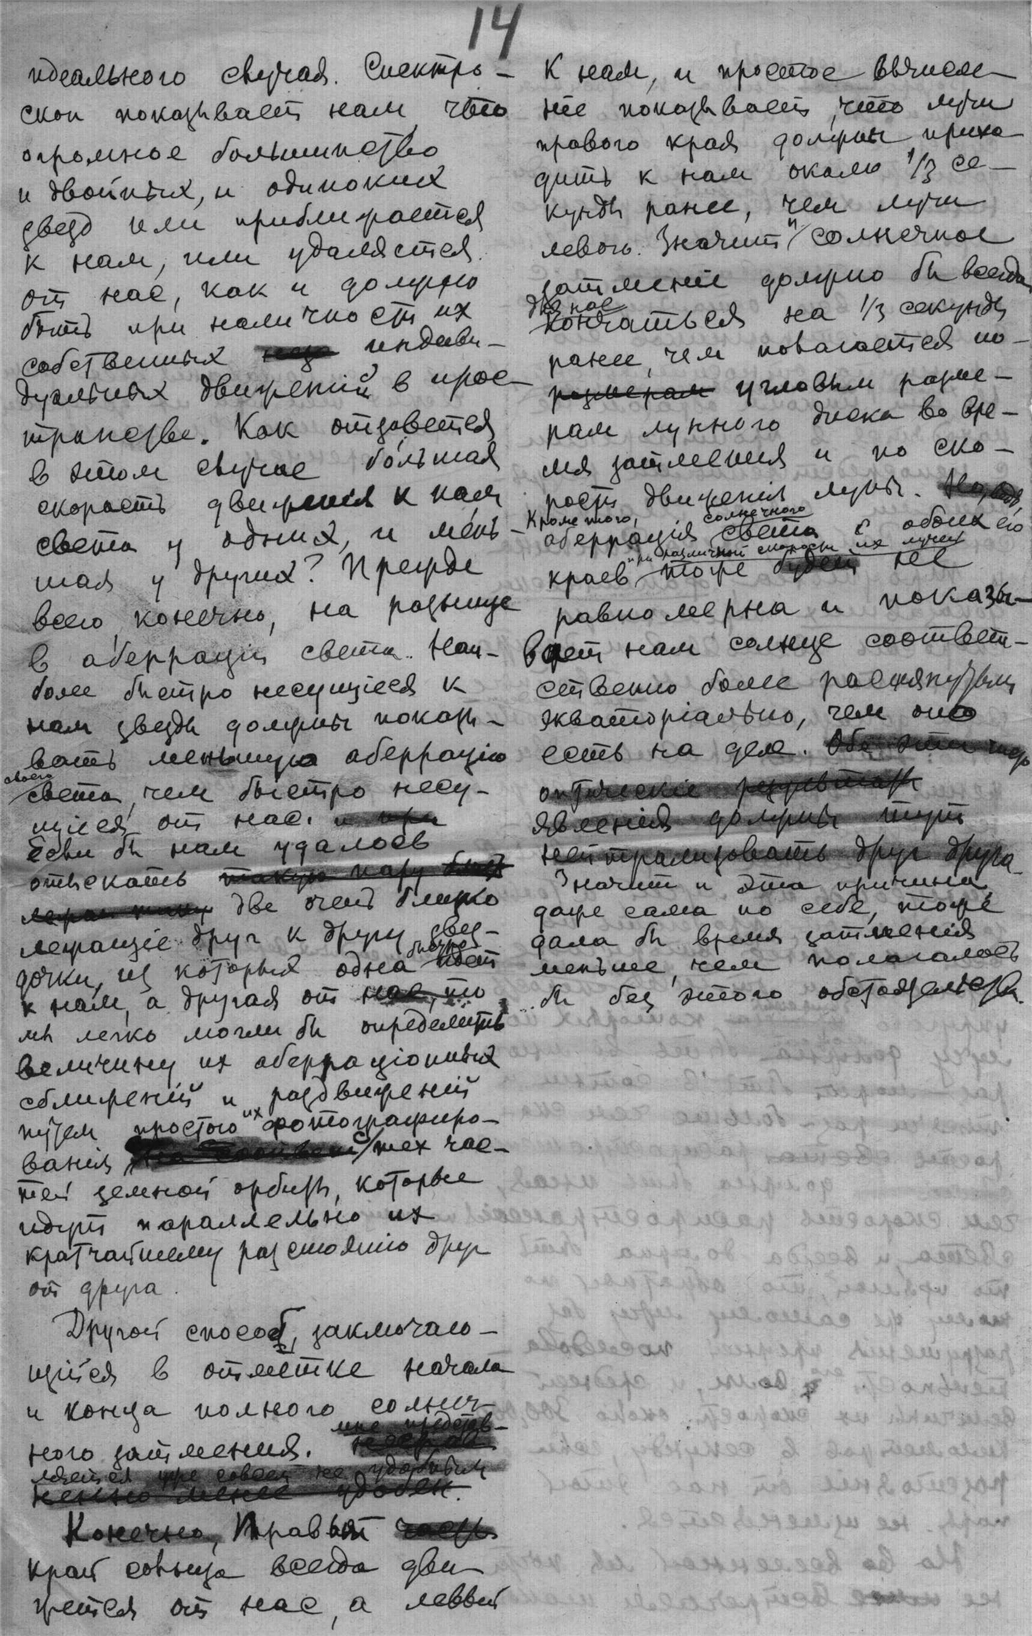 14
идеального случая. Спектро-
скоп показывает нам, что
огромное большинство
и двойных, и одиноких
звезд или приближается
к нам, или удаляется
от нас, как и должно
быть при наличности их
собственных индиви-
дуальных движений в прос-
транстве. Как отзовется
в этом случае большая
скорость движения к нам
света у одних, и мень-
шая у других? Прежде
всего, конечно, на разнице
в аберрации света. Наи-
более быстро несущиеся к
нам звезды должны показы-
вать меньшую аберрацию
своего
света, чем быстро несу-
щиеся от нас.
Если бы нам удалось
отыскать
две очень близко
лежащие друг к другу звез-
дочки, из которых одна
к нам, а другая от нас, то
мы легко могли бы определить
величину их аберраціонных
сближеній и раздвиженій
путем простого их фотографиро-
ванія с тех час-
тей земной орбиты, которые
идут параллельно их
кратчайшему разстоянію друг
от друга.
Другой способ, заключаю-
щійся в отметке начала
и конца полного солнеч-
ного затмения. мне представ-
ляется уже совсем не удобным
Конечно, правый
край солнца всегда дви-
жется от нас, а леввый
к нам, и простое вычисле-
ніе показывает, что лучи
правого края должны прихо-
дить к нам около 1/3 се-
кунды ранее, чем лучи
левого. Значит и солнечное
затменіе должно бы всегда
для нас
кончаться на 1/3 секунды
ранее, чем полагается по
угловым разме-
рам лунного диска во вре-
мя затмения и по ско-
рости движенія луны.
Кроме того, солнечного
аберрація света с обоих его
при различной скорости их лучей
краев тоже не
равномерна и показы-
вает нам солнце соответ-
ственно более растянутым
экваторіально, чем оно
есть на деле. Обе эти
оптическіе результаты
явленія должны тут
нейтрализовать друг друга.
Значит и эта причина,
даже сама по себе, тоже
дала бы время затмения
меньше, чем полагалось
бы без этого обстоятельства.